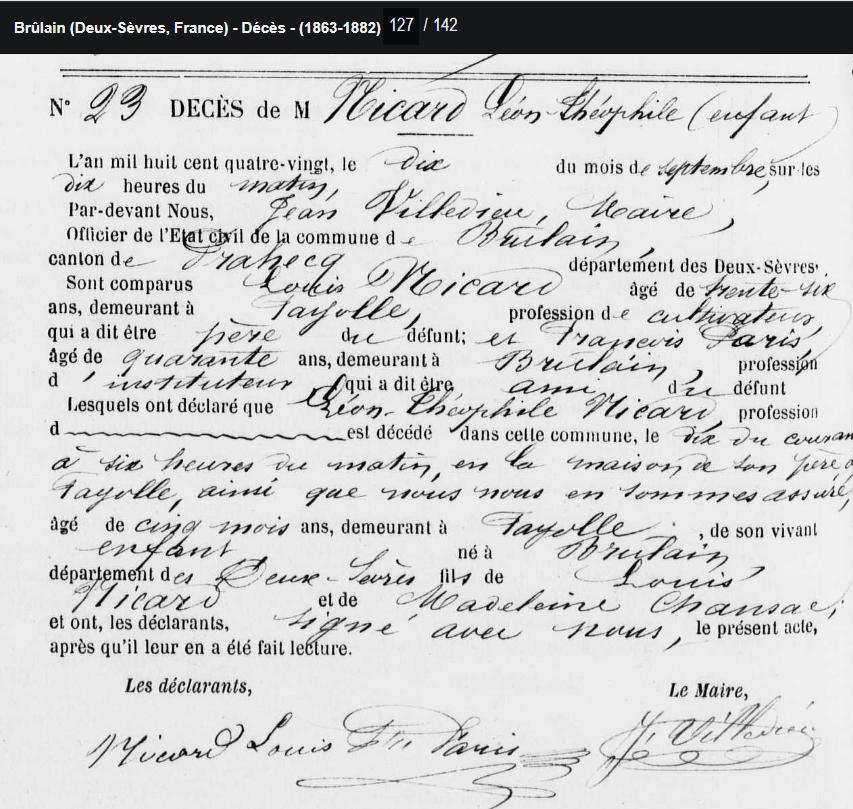 Brûlain (Deux-Sèvres, France) - Décès - (1863-1882) 127 / 142
N° 23 DECÈS de M Nicard Léon-Théophile (enfant
L'an mil huit cent quatre-vingt, le dix du mois de septembre, sur les
dix heures du matin,
Par-devant Nous, Jean Villedieu, Maire,
Officier de l'Etat civil de la commune de Brulain,
canton de Prahecq département des Deux-Sèvres.
Sont comparus Louis Nicard âgé de trente-six
ans, demeurant à Fayolle, profession de cultivateur,
qui a dit être père du défunt; et Francois Paris,
âgé de quarante ans, demeurant à Brulain, profession
d'instituteur qui a dit être ami du défunt
Lesquels ont déclaré que Léon-Théophile Nicard, profession
d est décédé dans cette commune, le dix du courant
à six heures du matin, en la maison de son père, à
Fayolle, ainsi que nous nous en sommes assuré,
âgé de cinq mois ans, demeurant à Fayolle, de son vivant
enfant né à Brulain,
département des Deux-Sèvres fils de Louis
Nicard et de Madeleine Chansac;
et ont, les déclarants, signé avec nous, le présent acte,
après qu'il leur en a été fait lecture.
Les déclarants, Le Maire,
Nicard Louis Fois Paris J. Villedieu